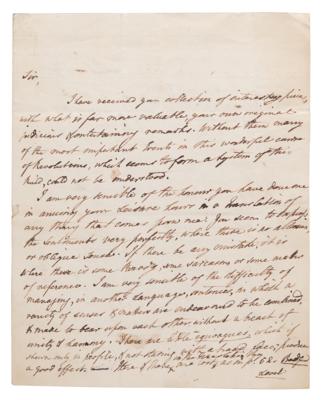 Sir,
I have received your collection of interesting pieces,
with what is far more valuable your own original
judicious & entertaining remarks. Without them many
of the most important Events in this wonderful course
of Revolutions, which seems to form a System of this
kind, could not be understood.
I am very sensible of the honour you have done me
in amusing your Leisure hours in a translation of
any thing that comes from me: You seem to
the Sentiments very perfectly, where there is no allusion,
or oblique Sense. If there be any mistake, it is
where there is some Irony, some sarcasm or some matter
of reference. I am very sensible of the difficulty of
managing, in another Language, sentences, in which a
variety of senses & matters are endeavoured to be combined
& made to bear upon each other without a breach of
unity & harmony. There are which if
shewn only in profile, & not strongly
a good effect.